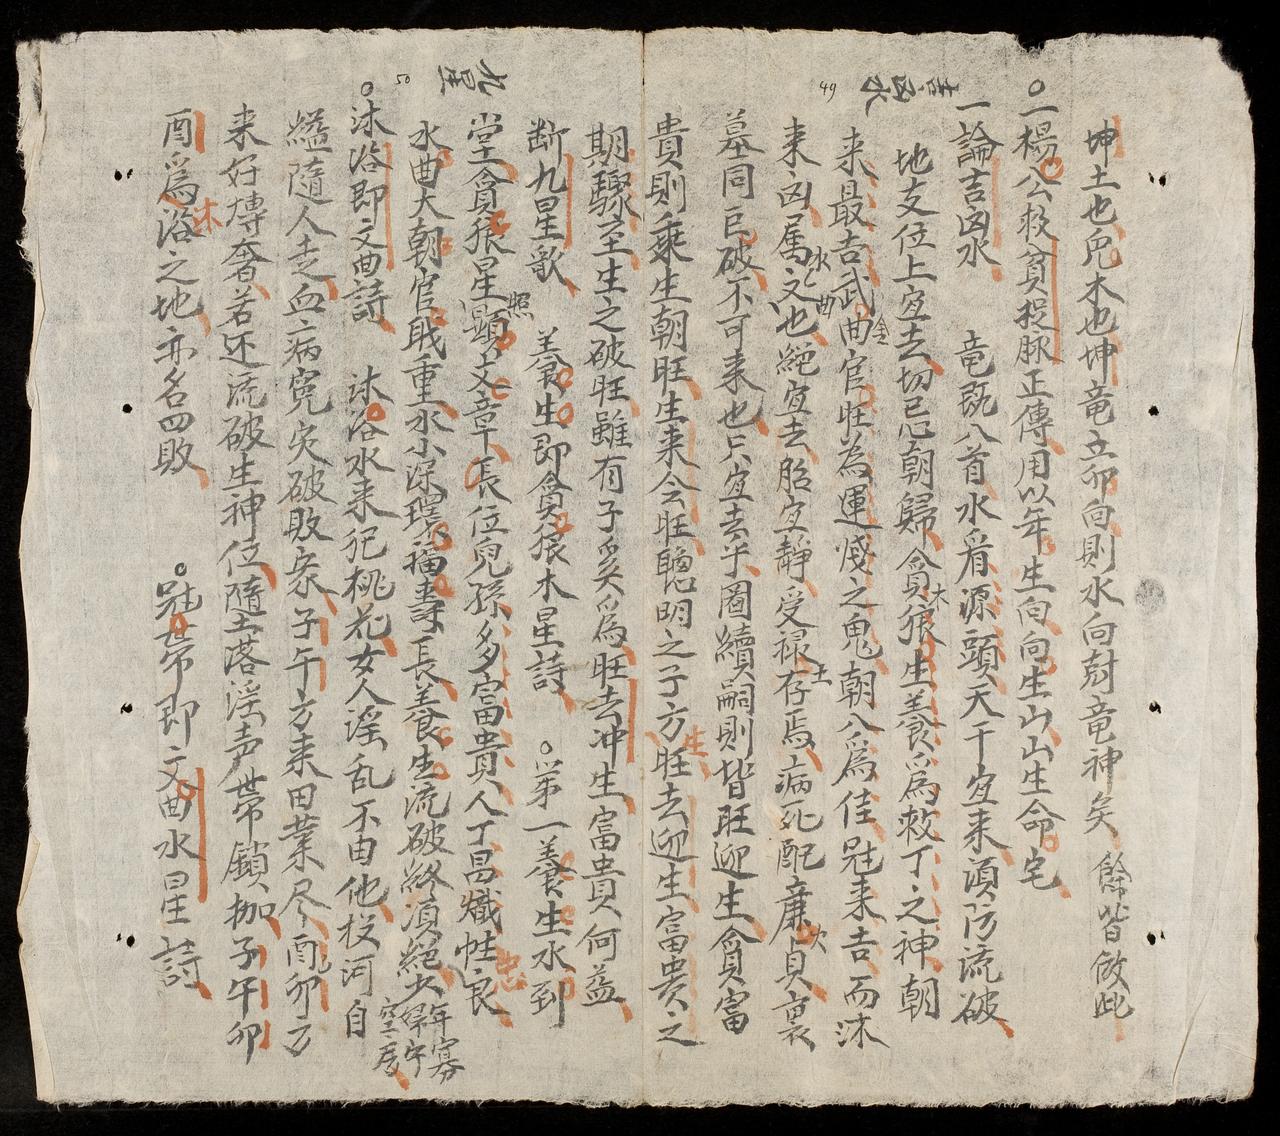 坤土也卯木也坤竜立卯向則水向尅竜神矣 餘皆倣此
一楊公救貧捉脉正傳用以年生向向生山山生命宅
一論吉凶水 竜既八首水看源頭天干宜来須防流破
地支位上宜去切忌朝歸貪狼木生養為救丁之神朝
来最吉武曲金官旺為運賤之鬼朝八為佳冠来吉而沐
来凶属文曲水也絕宜去胎宜靜受禄存土焉病死配廉貞火衰
墓同巨破不可来也只宜去乎圖續嗣則皆旺迎生貪富
貴則乘生朝旺生来会旺聰明之子方生旺去迎生富貴之
期驟至生之破旺雖有子奚為旺去冲生富貴何益
断九星歌 養生即貪狼木星詩 第一養生水到
堂貪狼星顯照文章長位兒孫多富貴人丁昌熾性忠良
水曲大朝官职重水小深環福壽長養生流破終須絕少年寡婦守空房
沐浴即文曲詩 沐浴水来犯桃花女人淫乱不由他投河自
縊隨人走血病冤灾破敗家子午方来田業尽酉卯方
来好博奢若还流破生神位隨土落淫声帶鎖枷子午卯
酉為沐浴之地亦名四敗 冠帶即文曲水星詩
吉凶水
49
九星
50